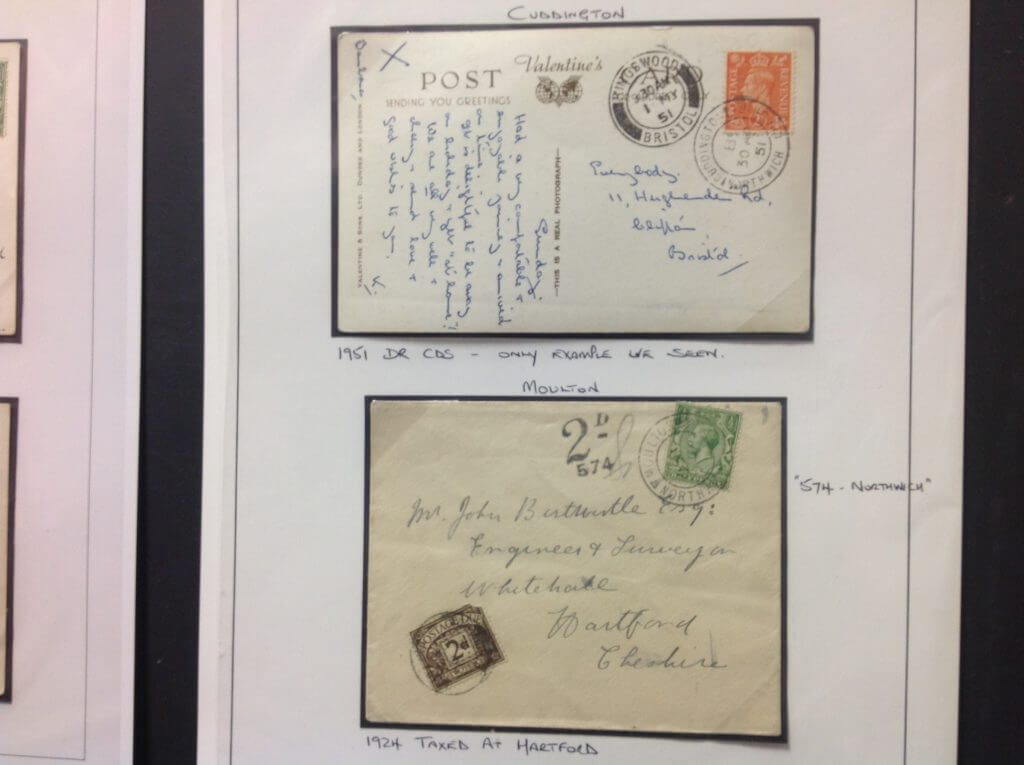 CUDDINGTON
POST
SENDING YOU GREETINGS
Valentine's
X
VALENTINE & SONS, LTD., DUNDEE AND LONDON
THIS IS A REAL PHOTOGRAPH
Sunday.
Had a very comfortable +
enjoyable journey + arrived
on time:
delightful to be away
on holiday + yet "at home"!
We are all very well +
cheery + send love +
good wishes to you.
K.
KINGSWOOD
30 AM
51
BRISTOL
POSTAGE REVENUE
CUDDINGTON
30
51
NORTHWICH
Everybody.
11, Hughenden Rd,
Clifton,
Bristol.
1951 DR CDS - ONLY EXAMPLE WE SEEN.
MOULTON
2D
574
MOULTON
NORTH
"574 - NORTHWICH"
Mr. John Birtwistle Esq:
Engineer & Surveyor
Whitehall
Hartford
Cheshire
POSTAGE DUE
2d
1924 TAXED AT HARTFORD